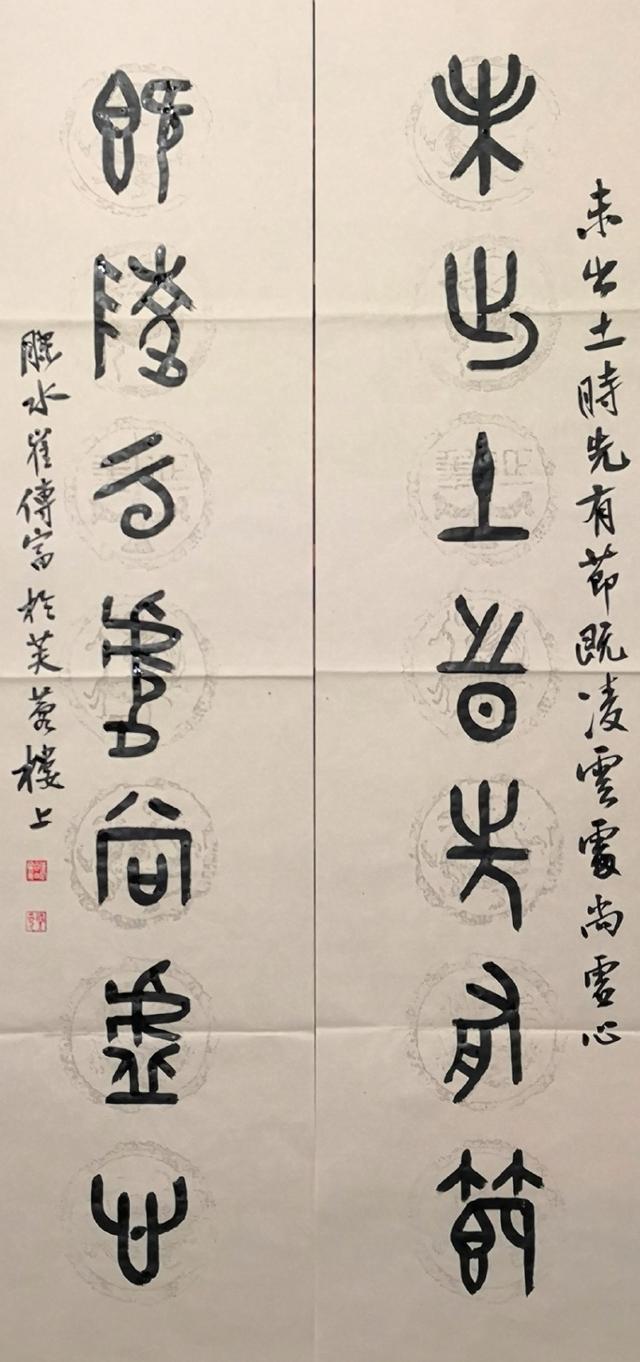 未出土時先有節既凌雲處尚虛心
未出土時先有節
既陵云處尚虛心
膠水崔傳富於芙蓉樓上